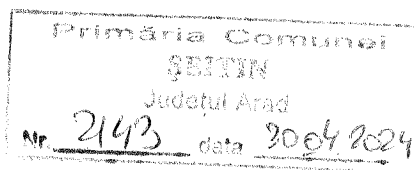 Primăria Comunei
ŞEITIN
Județul Arad
Nr. 2143 data 30 04 2024